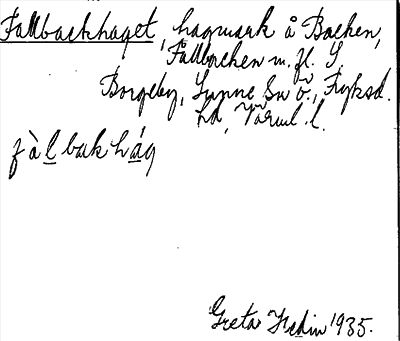 Fallbackhaget, hagmark å Backen,
Fallbacken m. fl. S.
Borgeby, Sunne Sn ö., Fryksd.
hd, Värml. l.
fàl bak hág
Greta Hedin 1935.